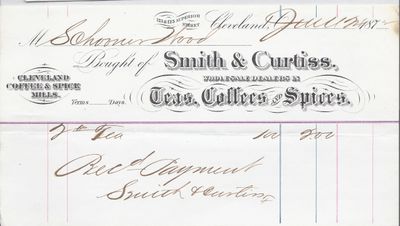 123 & 125 SUPERIOR
STREET
Cleveland, June 12 187
M Schooner Wood
Bought of Smith & Curtiss.
WHOLESALE DEALERS IN
Teas, Coffees AND Spices.
CLEVELAND
COFFEE & SPICE
MILLS.
Terms Days.
2 lb Tea 100 2.00
Recd Payment
Smith & Curtiss